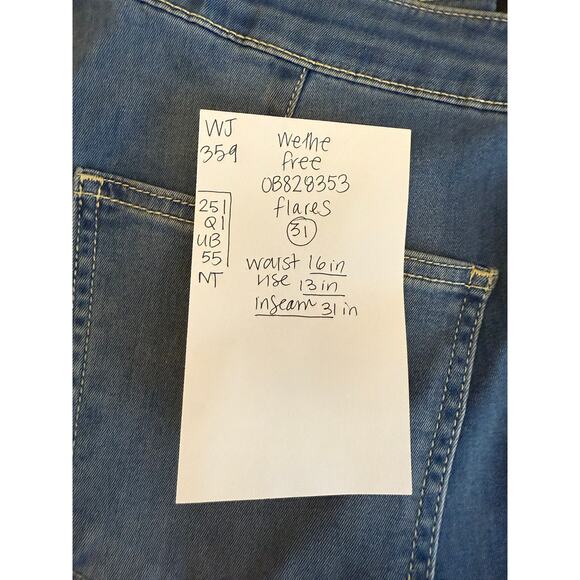 WJ
359
251
Q1
UB
55
NT
we the
free
OB828353
flares
31
waist 16 in
rise 13 in
inseam 31 in